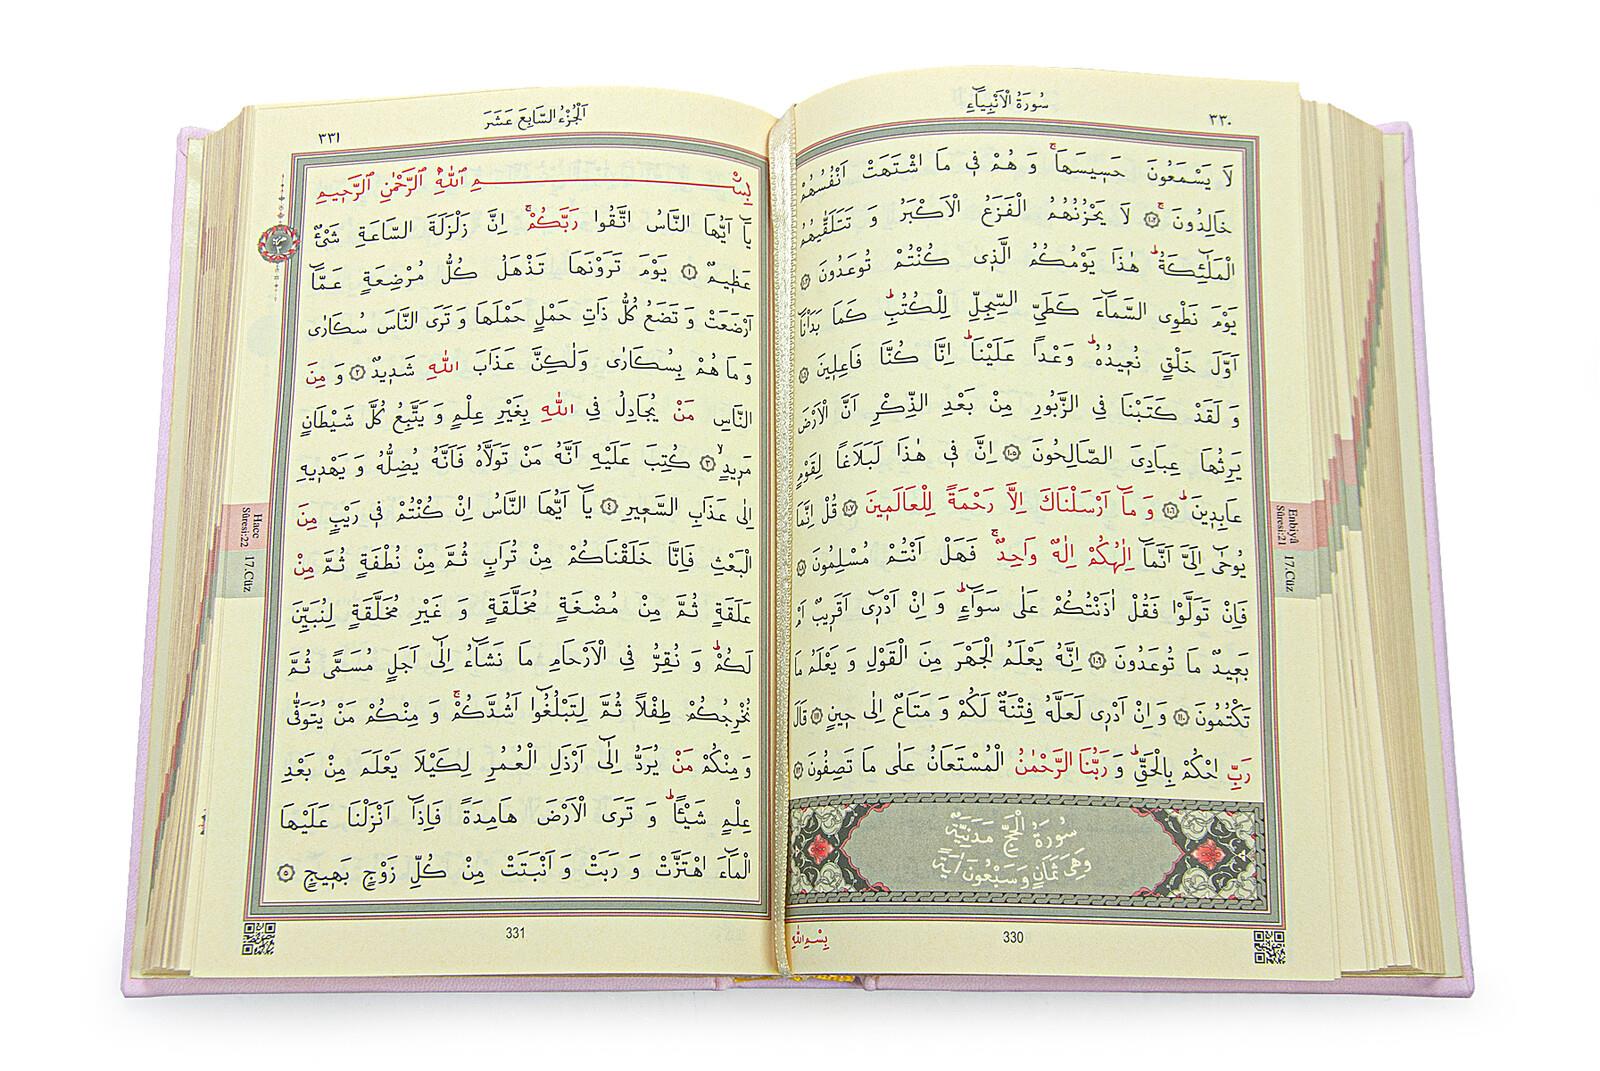 سُورَةُ الْاَنْبِيَاءِ
٣٣٠
لَا يَسْمَعُونَ حَسِيسَهَاۚ وَ هُمْ فٖى مَا اشْتَهَتْ اَنْفُسُهُمْ
خَالِدُونَۚ ﴿١٠٢﴾ لَا يَحْزُنُهُمُ الْفَزَعُ الْاَكْبَرُ وَ تَتَلَقّٰيهُمُ
الْمَلٰٓئِكَةُؕ هٰذَا يَوْمُكُمُ الَّذٖى كُنْتُمْ تُوعَدُونَ ﴿١٠٣﴾
يَوْمَ نَطْوِى السَّمَٓاءَ كَطَىِّ السِّجِلِّ لِلْكُتُبِؕ كَمَا بَدَاْنَٓا
اَوَّلَ خَلْقٍ نُعٖيدُهُؕ وَعْداً عَلَيْنَاؕ اِنَّا كُنَّا فَاعِلٖينَ ﴿١٠٤﴾
وَ لَقَدْ كَتَبْنَا فِى الزَّبُورِ مِنْ بَعْدِ الذِّكْرِ اَنَّ الْاَرْضَ
يَرِثُهَا عِبَادِىَ الصَّالِحُونَ ﴿١٠٥﴾ اِنَّ فٖى هٰذَا لَبَلَاغاً لِقَوْمٍ
عَابِدٖينَؕ ﴿١٠٦﴾ وَ مَٓا اَرْسَلْنَاكَ اِلَّا رَحْمَةً لِلْعَالَمٖينَ ﴿١٠٧﴾ قُلْ اِنَّمَا
يُوحٰٓى اِلَىَّ اَنَّمَٓا اِلٰهُكُمْ اِلٰهٌ وَاحِدٌۚ فَهَلْ اَنْتُمْ مُسْلِمُونَ ﴿١٠٨﴾
فَاِنْ تَوَلَّوْا فَقُلْ اٰذَنْتُكُمْ عَلٰى سَوَٓاءٍؕ وَ اِنْ اَدْرٖٓى اَقَرٖيبٌ اَمْ
بَعٖيدٌ مَا تُوعَدُونَ ﴿١٠٩﴾ اِنَّهُ يَعْلَمُ الْجَهْرَ مِنَ الْقَوْلِ وَ يَعْلَمُ مَا
تَكْتُمُونَ ﴿١١٠﴾ وَ اِنْ اَدْرٖى لَعَلَّهُ فِتْنَةٌ لَكُمْ وَ مَتَاعٌ اِلٰى حٖينٍ ﴿١١١﴾ قَالَ
رَبِّ احْكُمْ بِالْحَقِّؕ وَ رَبُّنَا الرَّحْمٰنُ الْمُسْتَعَانُ عَلٰى مَا تَصِفُونَ ﴿١١٢﴾
سُورَةُ الْحَجِّ مَدَنِيَّةٌ
وَهِىَ ثَمَانٍ وَسَبْعُونَ اٰيَةً
بِسْمِ اللّٰهِ
330
Enbiyâ
Sûresi:21
17.Cüz
اَلْجُزْءُ السَّابِعَ عَشَرَ
٣٣١
بِسْمِ اللّٰهِ الرَّحْمٰنِ الرَّحٖيمِ
يَٓا اَيُّهَا النَّاسُ اتَّقُوا رَبَّكُمْۚ اِنَّ زَلْزَلَةَ السَّاعَةِ شَىْءٌ
عَظٖيمٌ ﴿١﴾ يَوْمَ تَرَوْنَهَا تَذْهَلُ كُلُّ مُرْضِعَةٍ عَمَّٓا
اَرْضَعَتْ وَ تَضَعُ كُلُّ ذَاتِ حَمْلٍ حَمْلَهَا وَ تَرَى النَّاسَ سُكَارٰى
وَ مَا هُمْ بِسُكَارٰى وَلٰكِنَّ عَذَابَ اللّٰهِ شَدٖيدٌ ﴿٢﴾ وَ مِنَ
النَّاسِ مَنْ يُجَادِلُ فِى اللّٰهِ بِغَيْرِ عِلْمٍ وَ يَتَّبِعُ كُلَّ شَيْطَانٍ
مَرٖيدٍۙ ﴿٣﴾ كُتِبَ عَلَيْهِ اَنَّهُ مَنْ تَوَلَّاهُ فَاَنَّهُ يُضِلُّهُ وَ يَهْدٖيهِ
اِلٰى عَذَابِ السَّعٖيرِ ﴿٤﴾ يَٓا اَيُّهَا النَّاسُ اِنْ كُنْتُمْ فٖى رَيْبٍ مِنَ
الْبَعْثِ فَاِنَّا خَلَقْنَاكُمْ مِنْ تُرَابٍ ثُمَّ مِنْ نُطْفَةٍ ثُمَّ مِنْ
عَلَقَةٍ ثُمَّ مِنْ مُضْغَةٍ مُخَلَّقَةٍ وَ غَيْرِ مُخَلَّقَةٍ لِنُبَيِّنَ
لَكُمْؕ وَ نُقِرُّ فِى الْاَرْحَامِ مَا نَشَٓاءُ اِلٰٓى اَجَلٍ مُسَمًّى ثُمَّ
نُخْرِجُكُمْ طِفْلاً ثُمَّ لِتَبْلُغُٓوا اَشُدَّكُمْۚ وَ مِنْكُمْ مَنْ يُتَوَفّٰى
وَ مِنْكُمْ مَنْ يُرَدُّ اِلٰٓى اَرْذَلِ الْعُمُرِ لِكَيْلَا يَعْلَمَ مِنْ بَعْدِ
عِلْمٍ شَيْـٔاًؕ وَ تَرَى الْاَرْضَ هَامِدَةً فَاِذَٓا اَنْزَلْنَا عَلَيْهَا
الْمَٓاءَ اهْتَزَّتْ وَ رَبَتْ وَ اَنْبَتَتْ مِنْ كُلِّ زَوْجٍ بَهٖيجٍ ﴿٥﴾
331
Hacc
Sûresi:22
17.Cüz